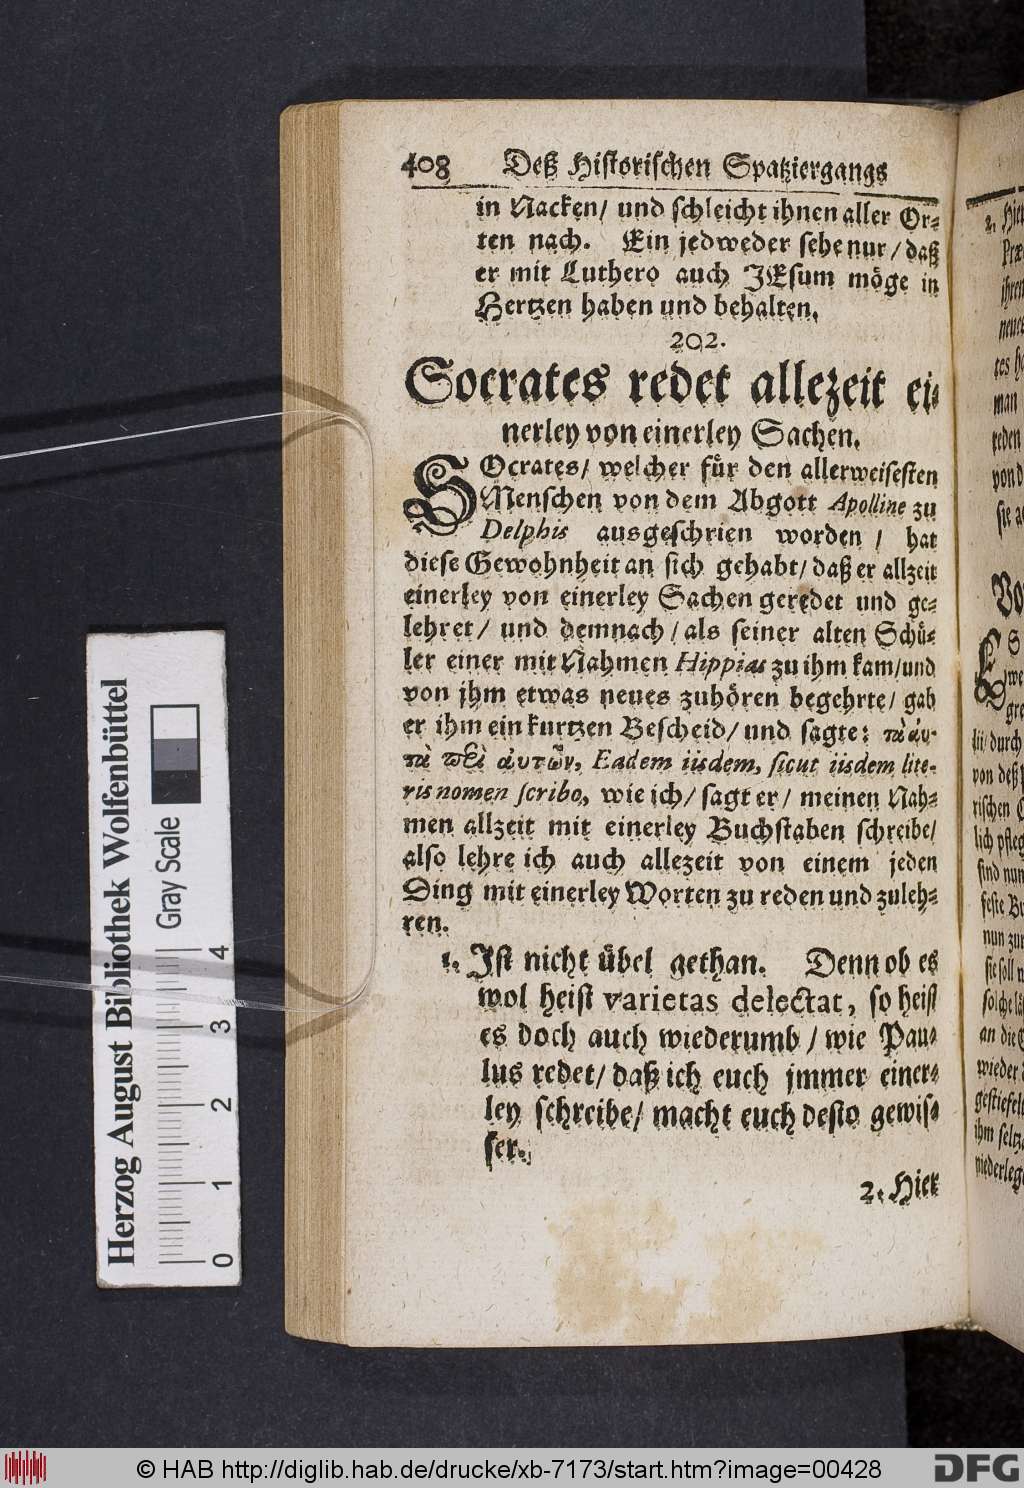 408 Deß Historischen Spatziergangs
in Nacken/ und schleicht ihnen aller Or-
ten nach. Ein jedweder sehe nur/ daß
er mit Luthero auch JEsum möge in
Hertzen haben und behalten.
202.
Socrates redet allezeit ei-
nerley von einerley Sachen.
SOcrates/ welcher für den allerweisesten
Menschen von dem Abgott Apolline zu
Delphis ausgeschrien worden / hat
diese Gewohnheit an sich gehabt/ daß er allzeit
einerley von einerley Sachen geredet und ge-
lehret/ und demnach/ als seiner alten Schü-
ler einer mit Nahmen Hippias zu ihm kam/ und
von jhm etwas neues zuhören begehrte/ gab
er ihm ein kurtzen Bescheid/ und sagte: τὰ αυ-
τὰ περὶ ἀυτῶν, Eadem iisdem, sicut iisdem lite-
ris nomen scribo, wie ich/ sagt er/ meinen Nah-
men allzeit mit einerley Buchstaben schreibe/
also lehre ich auch allezeit von einem jeden
Ding mit einerley Worten zu reden und zuleh-
ren.
1. Ist nicht übel gethan. Denn ob es
wol heist varietas delectat, so heist
es doch auch wiederumb / wie Pau-
lus redet/ daß ich euch jmmer einer-
ley schreibe/ macht euch desto gewis-
ser.
2. Hier
Herzog August Bibliothek Wolfenbüttel
Gray Scale
0 1 2 3 4
2. Hier
ihren
man
reden
von d
Vo
lii/ durch
von deß
rischen
sind nun
nun zur
sie soll
an die
wieder
niederlege
© HAB http://diglib.hab.de/drucke/xb-7173/start.htm?image=00428
DFG